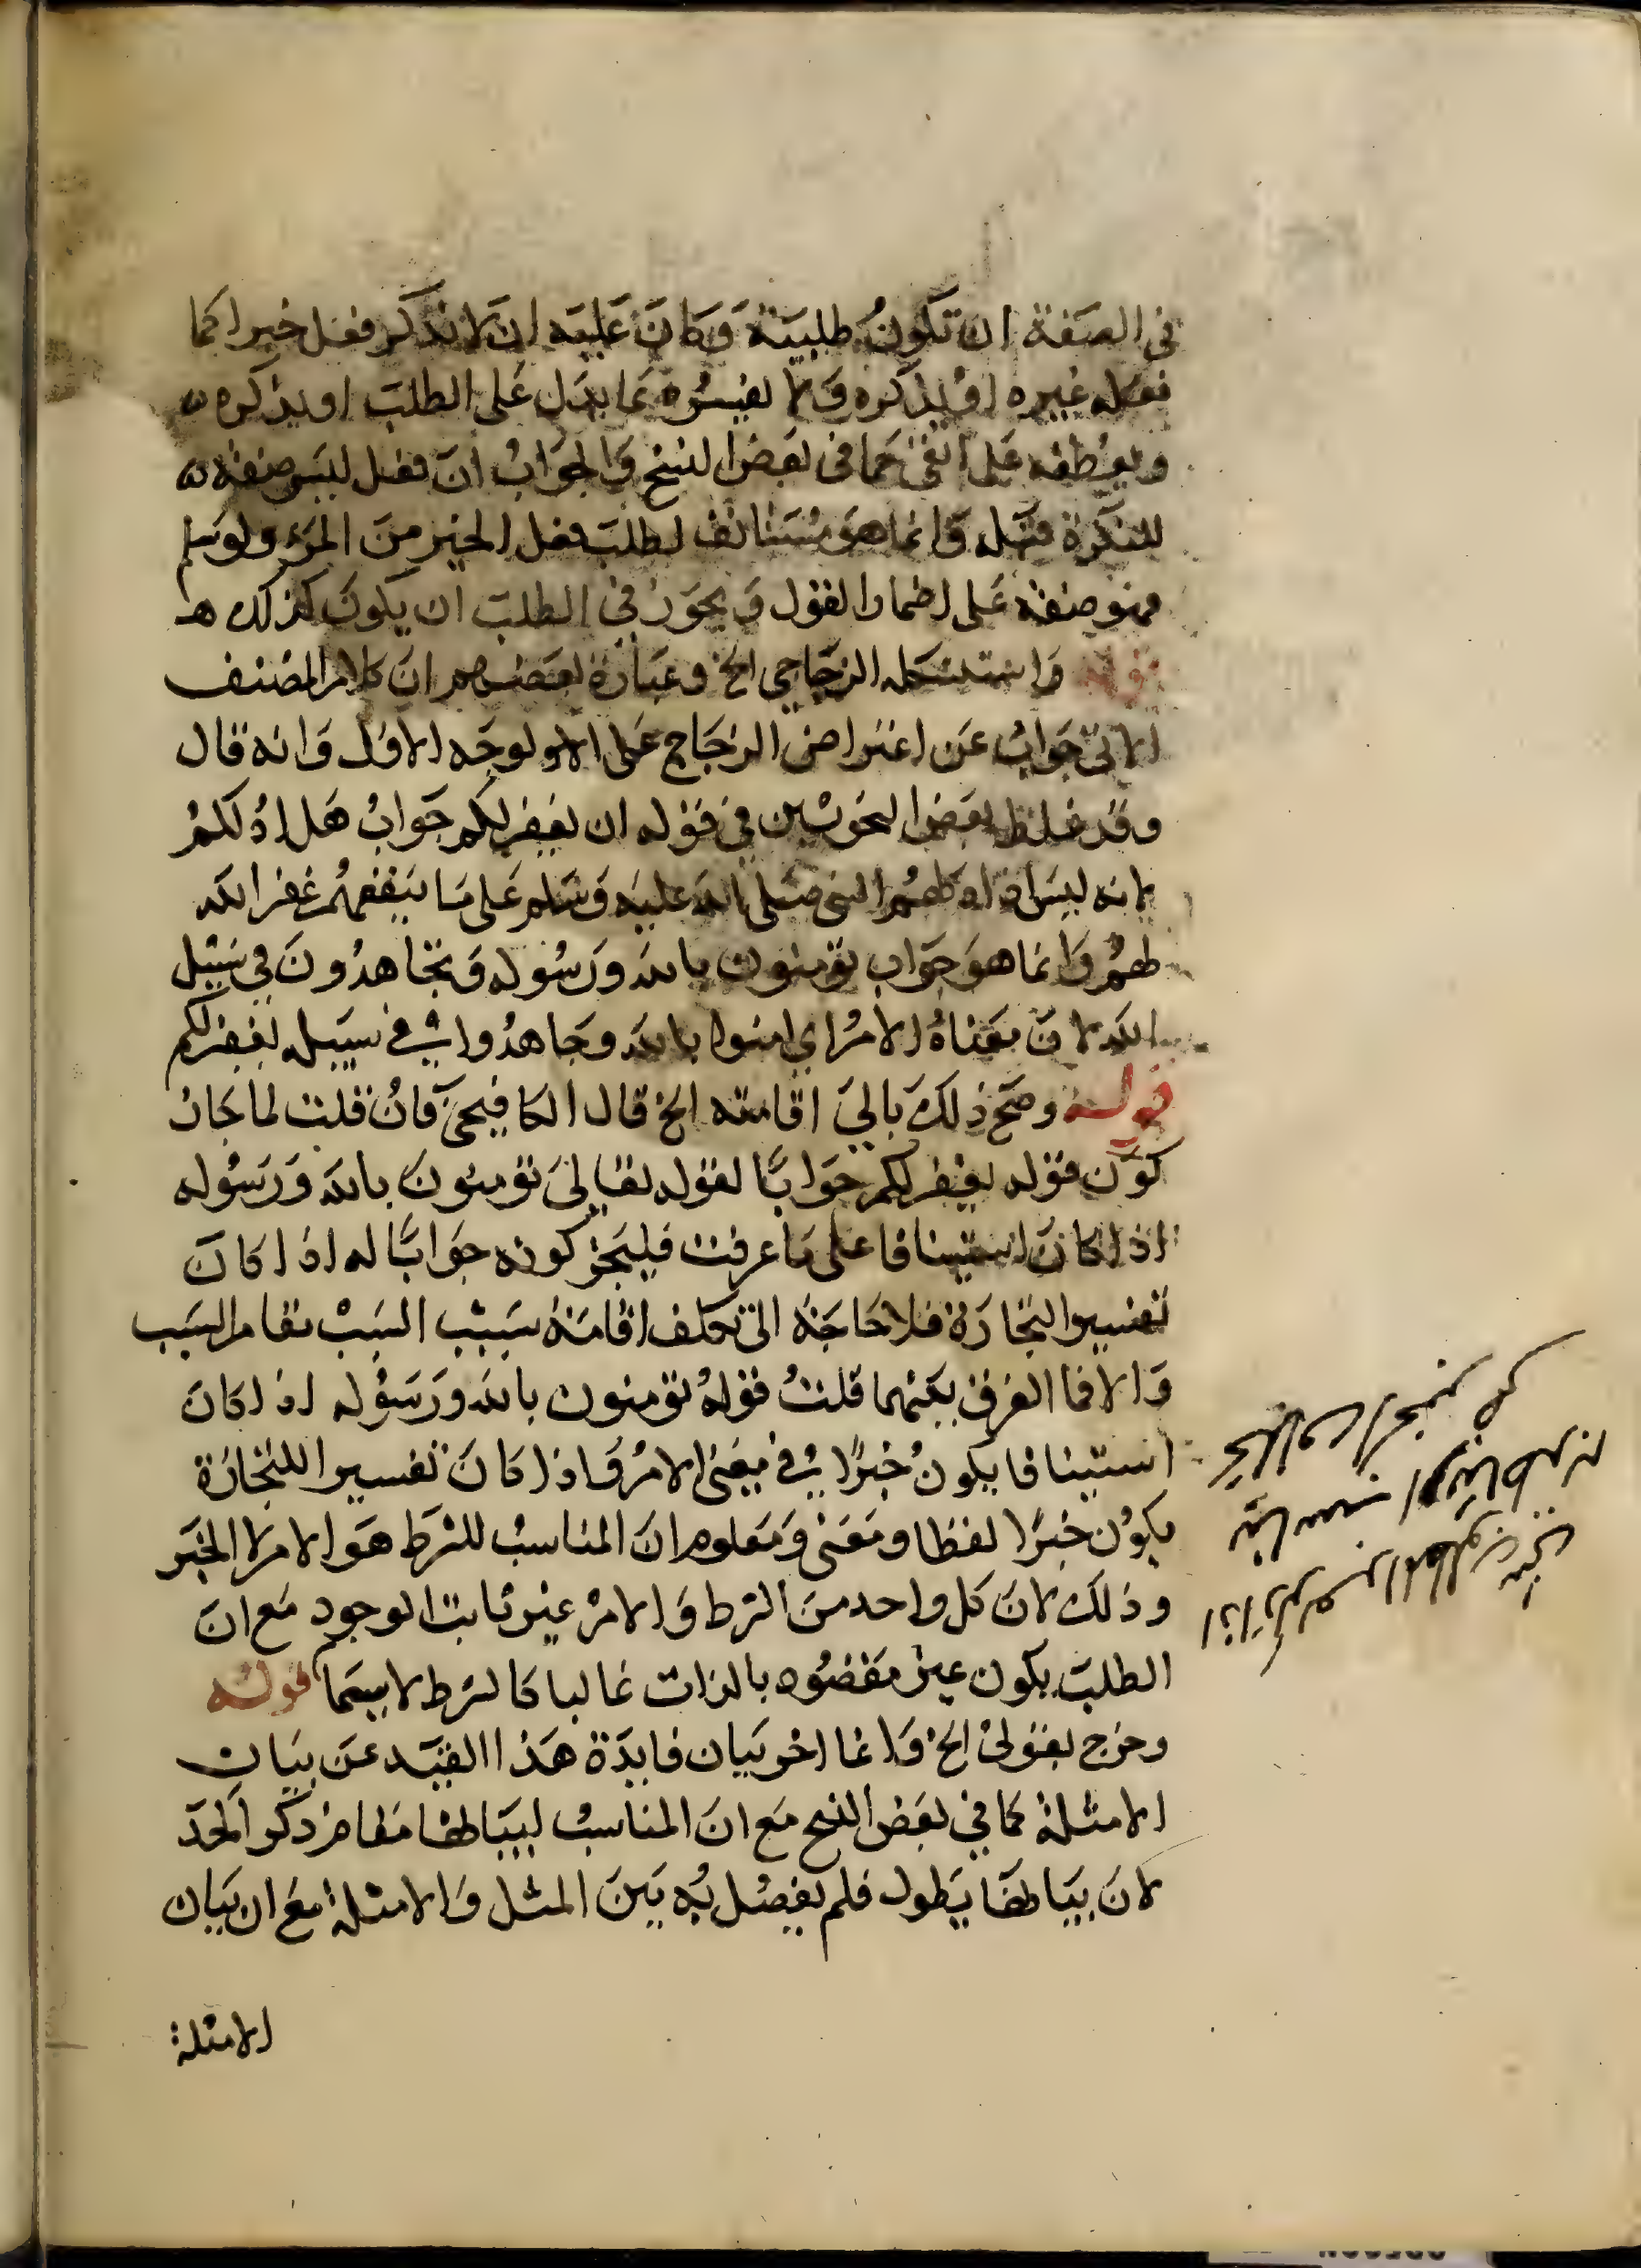 في الصفة ان تكون طلبية وكان عليه ان لا نذكر فعل خيرا كما
فعله غيره او يذكره ولا يفسره بما يدل على الطلب او يذكره
ويعطفه على اتقى كما في بعض النسخ والجواب ان فعل ليس صفة
للنكرة قبله وانما هو مستانف لطلب فعل الخير من المرء ولو سلم
فهو صفة على اضمار القول ويجوز في الطلب ان يكون كذلك هـ
قوله واستشكله الزجاجي الخ وعبارة بعضهم ان كلام المصنف
الاتي جواب عن اعتراض الزجاج على الاولوجه الاول وانه قال
وقد غلط بعض النحويين في قوله ان يغفر لكم جواب هل ادلكم
بانه ليس اذا دلهم النبي صلى الله عليه وسلم على ما ينفعهم غفر الله
لهم وانما هو جواب تومنون بالله ورسوله وتجاهدون في سبيل
الله لان معناه الامر اي امنوا بالله وجاهدوا في سبيله يغفر لكم
قوله وصح ذلك بالي اقامته الخ قال الكافيجي فان قلت لما جاز
كون قوله يغفر لكم جوابا لقوله تعالى تومنون بالله ورسوله
اذا كان استينافا على ما عرفت فليجز كونه جوابا له اذا كان
تفسيرا للتجارة فلا حاجة الى تكلف اقامة سبب السبب مقام السبب
والا فما الفرق بينهما قلت قوله تومنون بالله ورسوله اذا كان
استينافا يكون خبرا في معنى الامر واذا كان تفسيرا للتجارة
يكون خبرا لفظا ومعنى ومعلوم ان المناسب للشرط هو الامر لا الخبر
وذلك لان كل واحد من الشرط والامر غير ثابت الوجود مع ان
الطلب يكون غير مقصود بالذات غالبا كالشرط لا سيما قوله
وخرج بقولي الخ وانما اخر بيان فايدة هذا القيد عن بيان
الامثلة كما في بعض النسخ مع ان المناسب لبيانها مقام ذكر الحد
لان بيانها يطول فلم يفصل به بين المثل والامثلة مع ان بيان
الامثلة